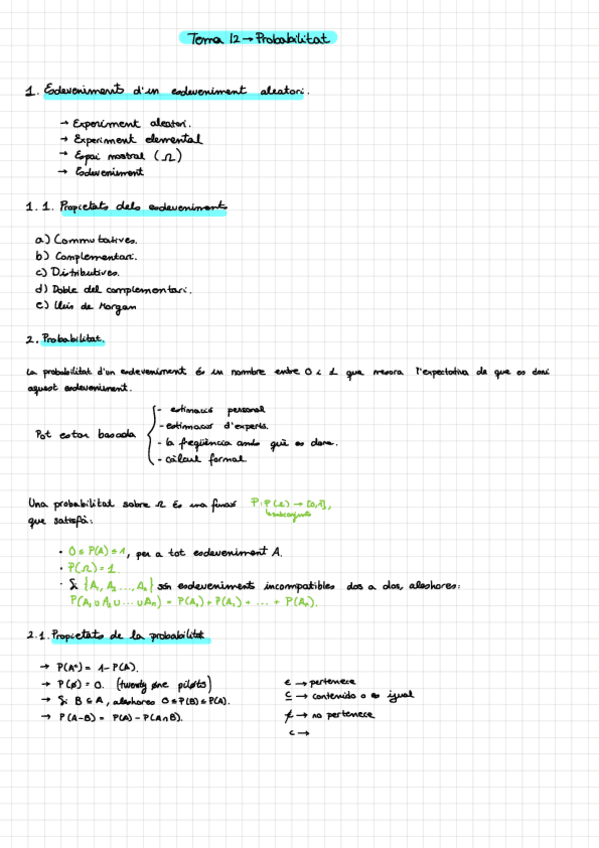 Tema 12 → Probabilitat
1. Esdeveniments d'un esdeveniment aleatori.
→ Experiment aleatori.
→ Experiment elemental
→ Espai mostral (Ω)
→ Esdeveniment
1.1. Propietats dels esdeveniments
a) Commutatives.
b) Complementari.
c) Distributives.
d) Doble del complementari.
e) Lleis de Morgan
2. Probabilitat.
La probabilitat d'un esdeveniment és un nombre entre 0 i 1 que mesura l'expectativa de que es doni
aquest esdeveniment.
Pot estar basada
- estimació personal
- estimació d'experts.
- la freqüència amb què es dona.
- càlcul formal
Una probabilitat sobre Ω és una funció P: P(Ω) → [0,1],
subconjunts
que satisfà:
• 0 ≤ P(A) ≤ 1, per a tot esdeveniment A.
• P(Ω) = 1.
• Si {A₁, A₂ ..., Aₙ} són esdeveniments incompatibles dos a dos, aleshores:
P(A₁ ∪ A₂ ∪ ... ∪ Aₙ) = P(A₁) + P(A₂) + ... + P(Aₙ).
2.1. Propietats de la probabilitat
→ P(Aᶜ) = 1 - P(A).
→ P(ø) = 0. (twenty øne piløts)
→ Si B ⊆ A, aleshores 0 ≤ P(B) ≤ P(A).
→ P(A-B) = P(A) - P(A∩B).
∈ → pertenece
⊆ → contenido o es igual
∉ → no pertenece
⊂ →